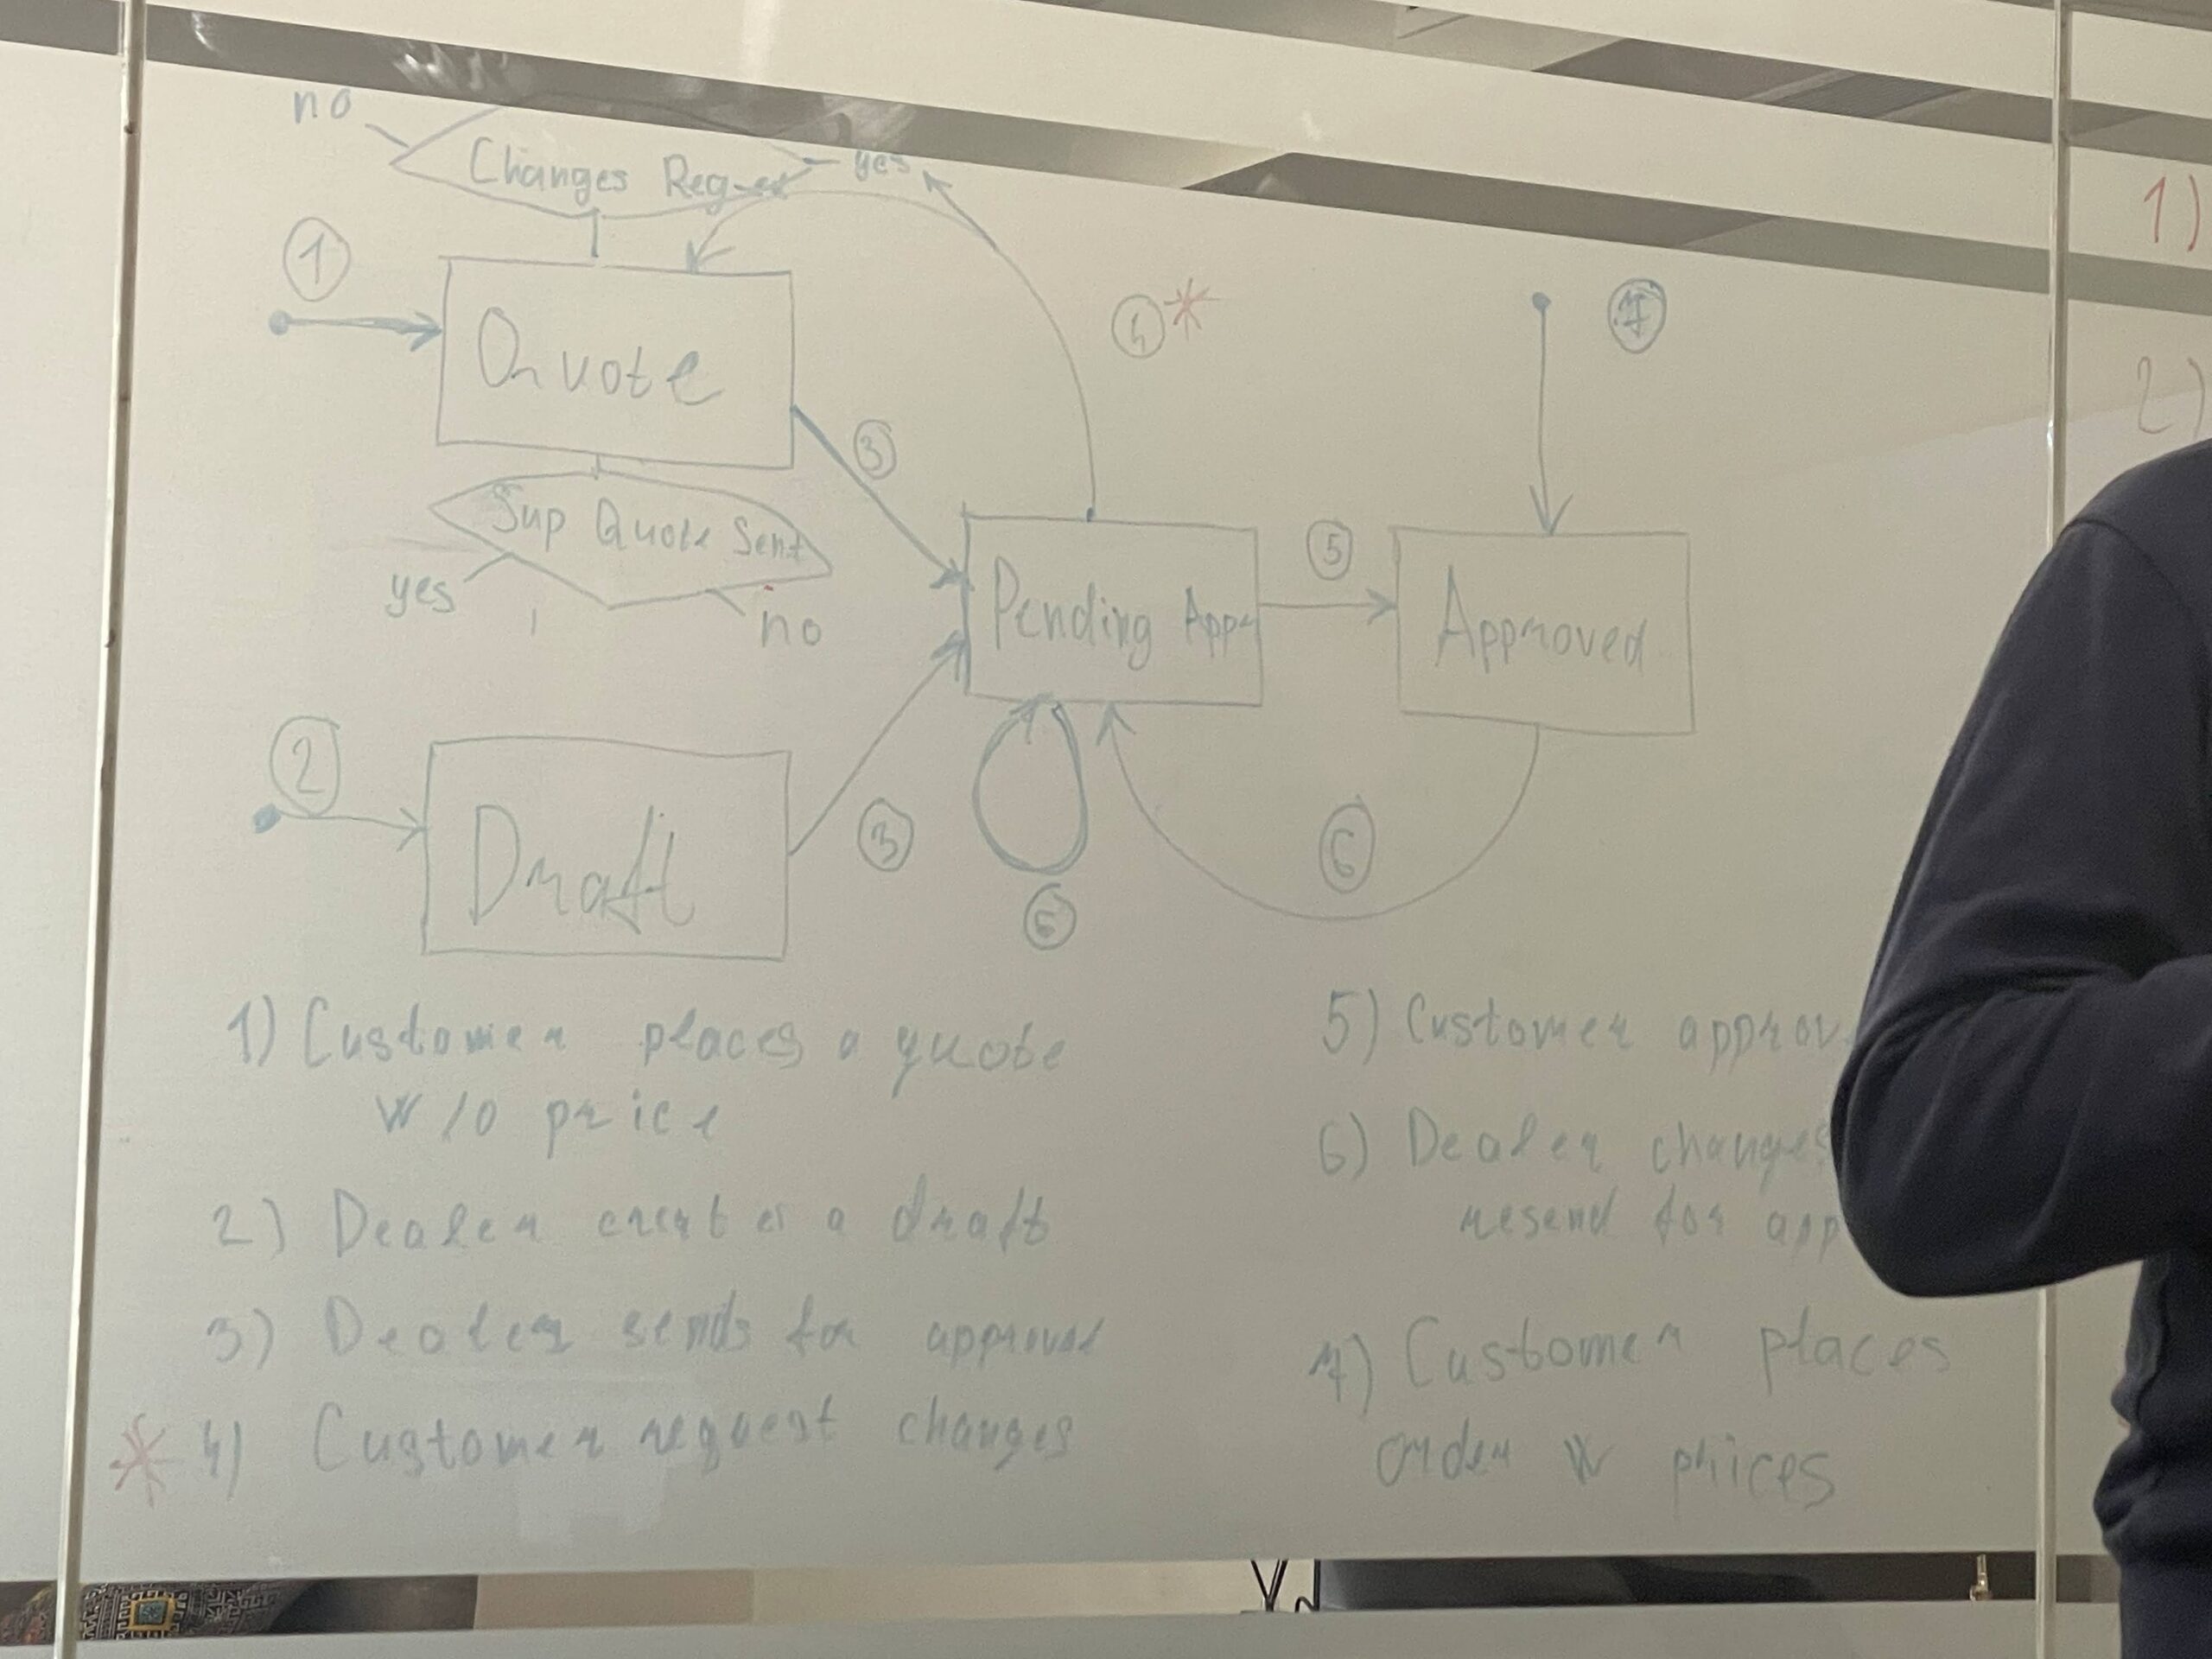 no
Changes Request
yes
1
Quote
4 *
7
3
Sup Quote Sent
yes
no
Pending Appr
5
Approved
2
Draft
3
6
6
1) Customer places a quote
w/o price
2) Dealer creates a draft
3) Dealer sends for approval
* 4) Customer request changes
5) Customer approv
6) Dealer changes
resend for app
7) Customer places
order w prices
1)
2)